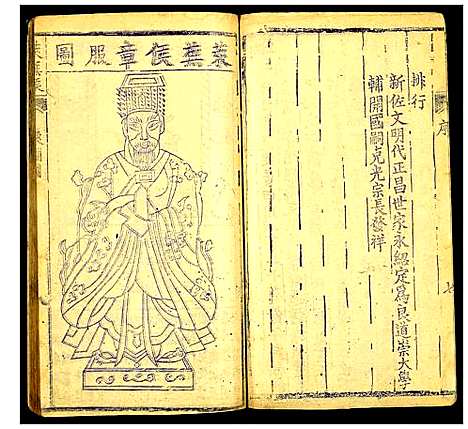 排行
新佐文明代正昌世家永紹定為良道崇大學
輔開國嗣克光宗長發祥
序
萊蕪侯章服圖